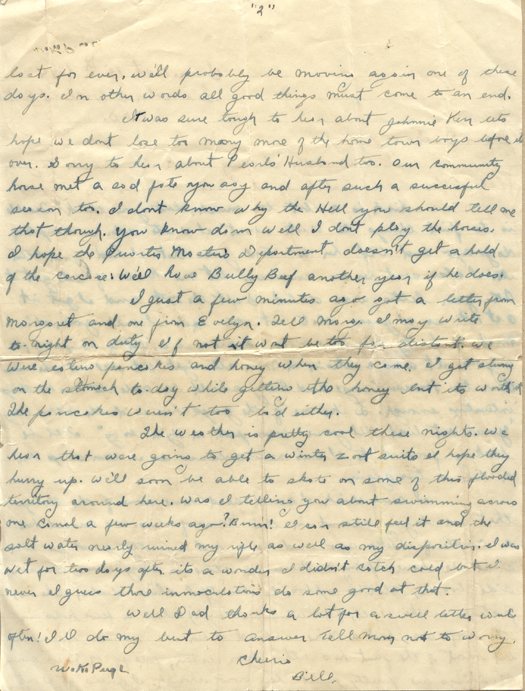 "2"
lost for ever. We'll probably be moving again one of these
days. In other words all good things must come to an end.
It was sure tough to hear about Johnnie Kerr lets
hope we dont lose too many more of the home town boys before its
over. Sorry to hear about Pearls' Husband too. Our community
horse met a sad fate you say and after such a successful
season too. I dont know why the Hell you should tell me
that though. You know darn well I dont play the horses.
I hope the Quarter Masters Department doesn't get a hold
of the carcass. We'll have Bully Beef another year if he does.
I just a few minutes ago got a letter from
Margaret and one from Evelyn. Tell Marge I may write
to-night on duty. If not it wont be too far distant. We
were eating pancakes and honey when they came. I got stung
on the stomach to-day while getting the honey but its worth it
The pancakes weren't too bad either.
The weather is pretty cool these nights. We
hear that were going to get a winter zoot suits I hope they
hurry up. Will soon be able to skate on some of this flooded
territory around here. Was I telling you about swimming across
one canal a few weeks ago? Brrrr! I can still feel it and the
salt water nearly ruined my rifle as well as my disposition. I was
wet for two days after its a wonder I didn't catch cold but I
never I guess those innoculations do some good at that.
Well Dad thanks a lot for a swell letter write
often! I'll do my best to answer tell mom not to worry.
Cheerio
W.K. Paige
Bill.